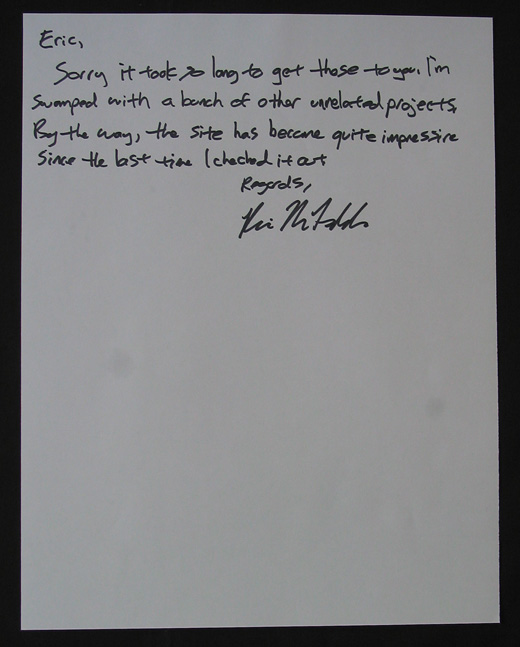 Eric,
Sorry it took so long to get these to you. I'm
swamped with a bunch of other unrelated projects.
By the way, the site has become quite impressive
since the last time I checked it out
Regards,